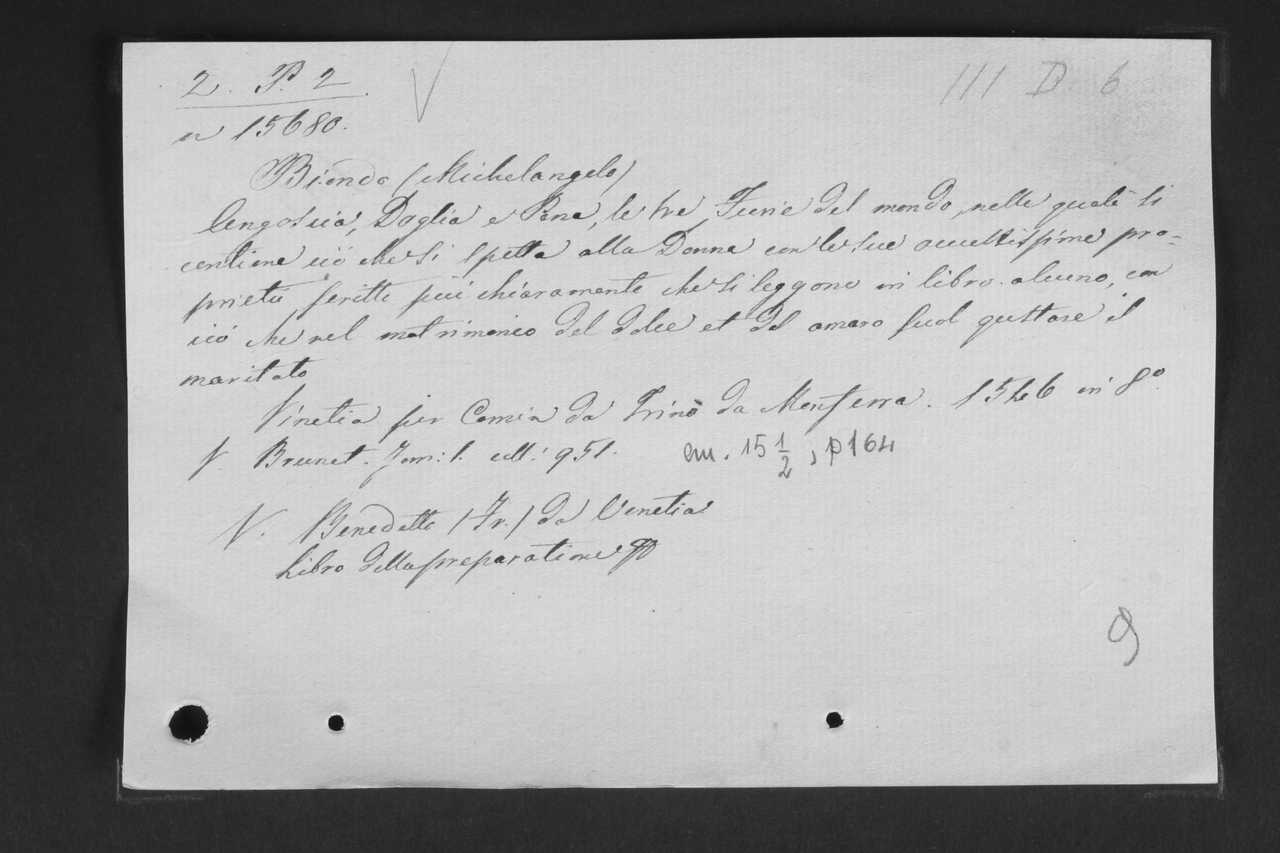 2. P. 2
III D. 6
n 15680.
Biondo (Michelangelo)
Angoscia, Doglia e Pena, le tre Furie del mondo, nelle quale si
contiene ciò che si spetta alla Donna con le sue occultissime pro-
prietà scritte più chiaramente che si leggono in libro alcuno, con
ciò che nel matrimonio del dolce et del amaro suol gustare il
maritato
Vinetia per Comin da Trino da Monferra. 1546 in 8º.
V. Brunet. Tom: 1. coll: 951.
cm. 15 1/2, P 164
V. Benedetto (Fr.) da Venetia
Libro della preparatione
9